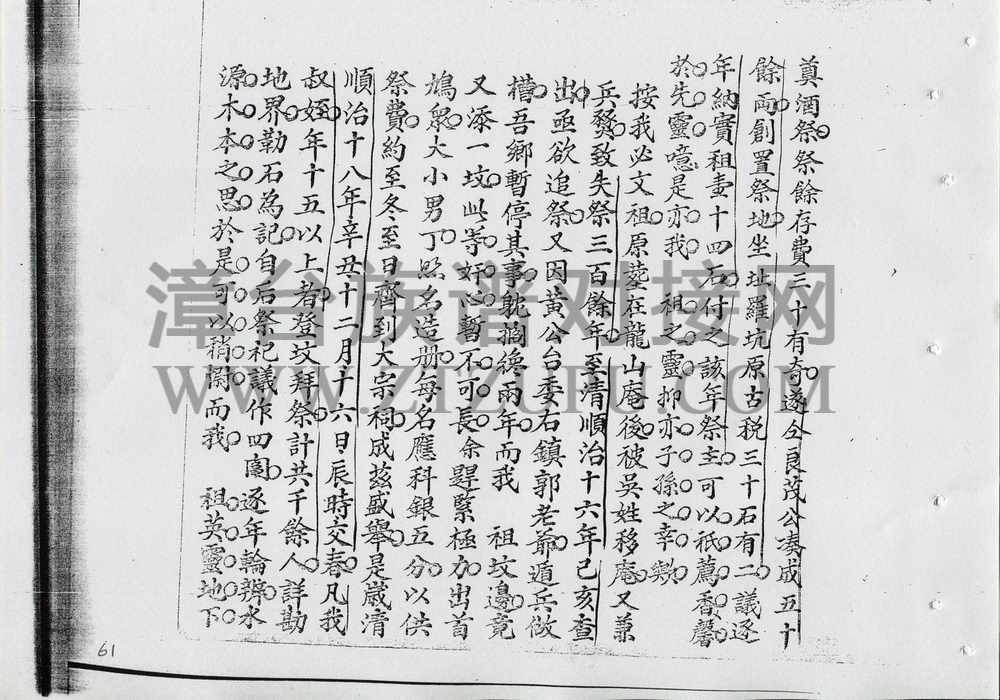 奠酒祭祭餘存費三十有奇遂仝良茂公湊成五十
餘両創置祭地坐址羅坑原古稅三十石有二議逐
年納實租壹十四石付之該年祭主可以祇薦香馨
於先靈噫是亦我　祖之靈抑亦子孫之幸歟
按我必文祖原塟在龍山庵後被吳姓移庵又兼
兵燹致失祭三百餘年至清順治十六年己亥查
出亟欲追祭又因黃公台委右鎮郭老爺遁兵做
槽吾鄉暫停其事躭擱後兩年而我　祖坟邊竟
又添一坟此等奸心暫不可長余趕緊極力出首
鳩眾大小男丁照名造册每名應科銀五分以供
祭費約至冬至日齊到大宗祠成茲盛舉是歲清
順治十八年辛丑十二月十六日辰時交春凡我
叔姪年十五以上者登坟拜祭計共千餘人詳勘
地界勒石為記自后祭祀議作四圍逐年輪辦水
源木本之思於是可以稍慰而我　祖英靈地下
61
漳台族谱对接网
WWW.ZTZUPU.COM